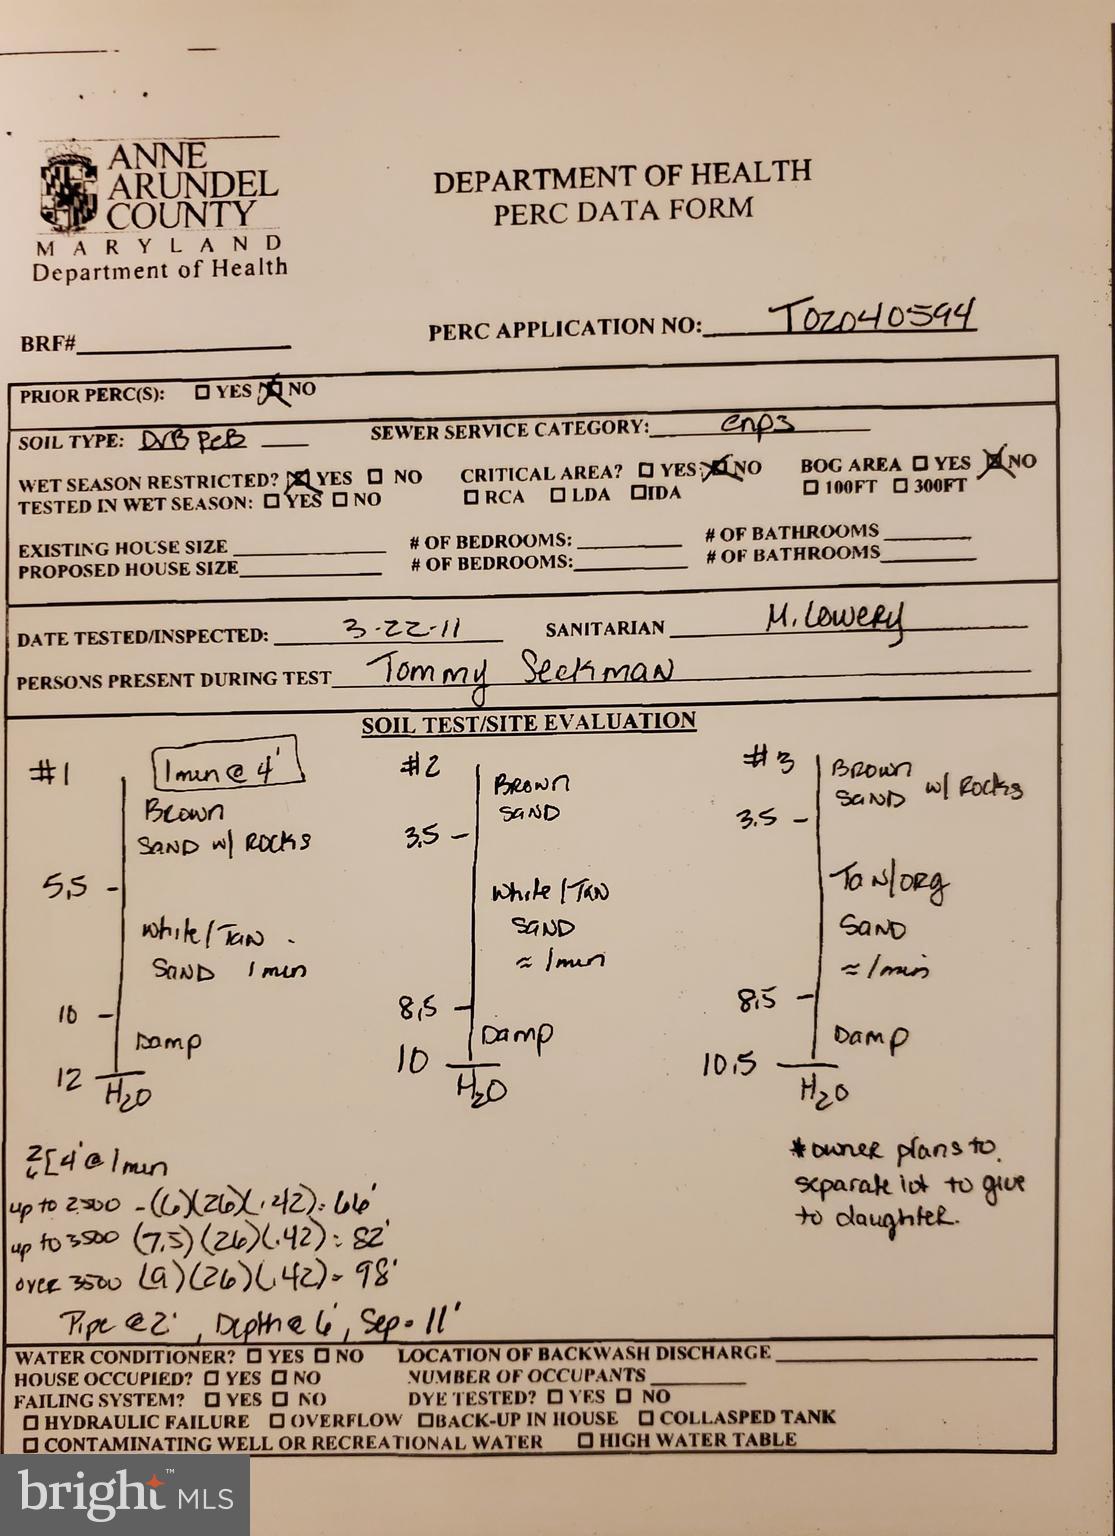 ANNE
ARUNDEL
COUNTY
MARYLAND
Department of Health
DEPARTMENT OF HEALTH
PERC DATA FORM
BRF#
PERC APPLICATION NO: T02040594
PRIOR PERC(S): YES NO
SOIL TYPE: DvB PeB SEWER SERVICE CATEGORY: cnps
WET SEASON RESTRICTED? YES NO CRITICAL AREA? YES NO BOG AREA YES NO
TESTED IN WET SEASON: YES NO RCA LDA IDA 100FT 300FT
EXISTING HOUSE SIZE # OF BEDROOMS: # OF BATHROOMS
PROPOSED HOUSE SIZE # OF BEDROOMS: # OF BATHROOMS
DATE TESTED/INSPECTED: 3-22-11 SANITARIAN M. Lowery
PERSONS PRESENT DURING TEST Tommy Seckman
SOIL TEST/SITE EVALUATION
#1 1min @ 4'
Brown
SAND w/ ROCKS
5,5
White/TAN
SAND 1 min
10
Damp
12
H2O
#2
Brown
SAND
3,5
White/TAN
SAND
≈ 1min
8,5
Damp
10
H2O
#3
Brown
SAND w/ ROCKS
3.5
TAN/ORG
SAND
≈ 1min
8,5
Damp
10,5
H2O
2
6 [4' @ 1min
up to 2500 - (6)(26)(.42) = 66'
up to 3500 (7,5)(26)(.42) = 82'
over 3500 (9)(26)(.42) = 98'
Pipe @ 2', Depth @ 6', Sep = 11'
* owner plans to
separate lot to give
to daughter.
WATER CONDITIONER? YES NO LOCATION OF BACKWASH DISCHARGE
HOUSE OCCUPIED? YES NO NUMBER OF OCCUPANTS
FAILING SYSTEM? YES NO DYE TESTED? YES NO
HYDRAULIC FAILURE OVERFLOW BACK-UP IN HOUSE COLLASPED TANK
CONTAMINATING WELL OR RECREATIONAL WATER HIGH WATER TABLE
bright™ MLS